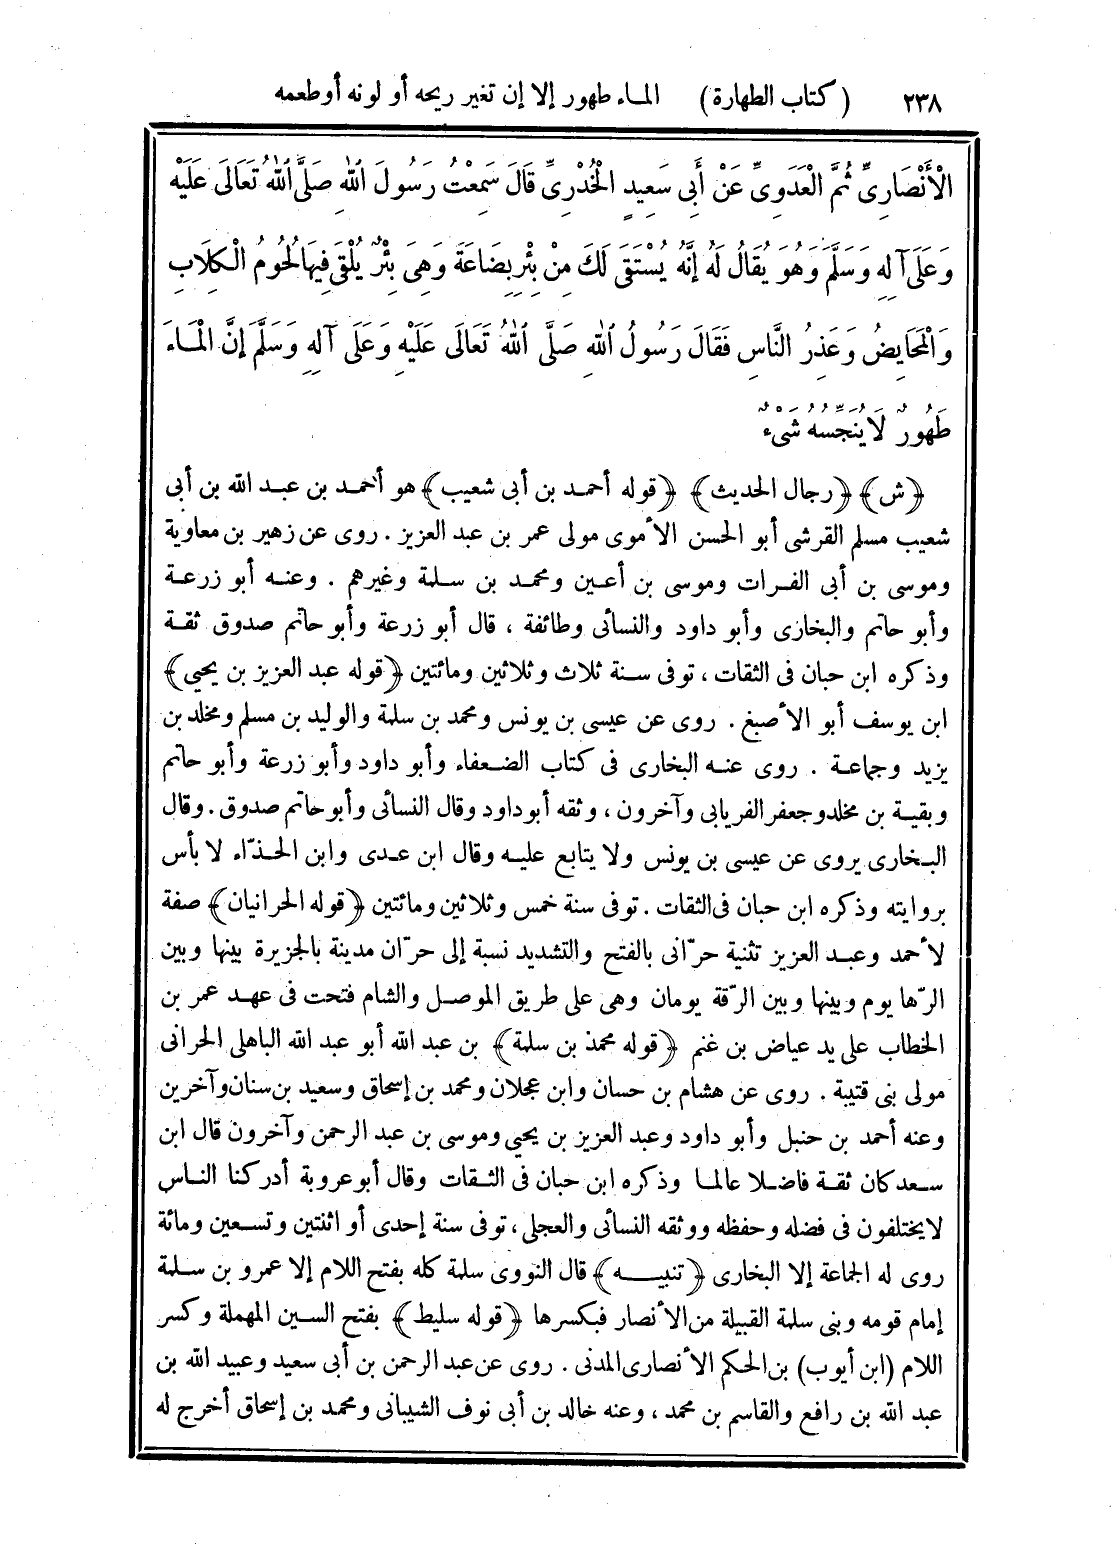 ٢٣٨ (كتاب الطهارة) الماء طهور إلا إن تغير ريحه أو لونه أو طعمه
الْأَنْصَارِىِّ ثُمَّ الْعَدَوِىِّ عَنْ أَبِى سَعِيدٍ الْخُدْرِىِّ قَالَ سَمِعْتُ رَسُولَ اللهِ صَلَّى اللهُ تَعَالَى عَلَيْهِ
وَعَلَى آلِهِ وَسَلَّمَ وَهُوَ يُقَالُ لَهُ إِنَّهُ يُسْتَقَى لَكَ مِنْ بِئْرِ بِضَاعَةَ وَهِىَ بِئْرٌ يُلْقَى فِيهَا لُحُومُ الْكِلَابِ
وَالْمَحَايِضُ وَعَذِرُ النَّاسِ فَقَالَ رَسُولُ اللهِ صَلَّى اللهُ تَعَالَى عَلَيْهِ وَعَلَى آلِهِ وَسَلَّمَ إِنَّ الْمَاءَ
طَهُورٌ لَا يُنَجِّسُهُ شَىْءٌ
﴿ش﴾ ﴿رجال الحديث﴾ ﴿قوله أحمد بن أبى شعيب﴾ هو أحمد بن عبد الله بن أبى
شعيب مسلم القرشى أبو الحسن الأموى مولى عمر بن عبد العزيز . روى عن زهير بن معاوية
وموسى بن أبى الفرات وموسى بن أعين ومحمد بن سلمة وغيرهم . وعنه أبو زرعة
وأبو حاتم والبخارى وأبو داود والنسائى وطائفة ، قال أبو زرعة وأبو حاتم صدوق ثقة
وذكره ابن حبان فى الثقات ، توفى سنة ثلاث وثلاثين ومائتين ﴿قوله عبد العزيز بن يحيى﴾
ابن يوسف أبو الأصبغ . روى عن عيسى بن يونس ومحمد بن سلمة والوليد بن مسلم ومخلد بن
يزيد وجماعة . روى عنه البخارى فى كتاب الضعفاء وأبو داود وأبو زرعة وأبو حاتم
وبقية بن مخلد وجعفر الفريابى وآخرون ، وثقه أبو داود وقال النسائى وأبو حاتم صدوق . وقال
البخارى يروى عن عيسى بن يونس ولا يتابع عليه وقال ابن عدى وابن الحذّاء لا بأس
بروايته وذكره ابن حبان فى الثقات . توفى سنة خمس وثلاثين ومائتين ﴿قوله الحرانيان﴾ صفة
لأحمد وعبد العزيز تثنية حرّانى بالفتح والتشديد نسبة إلى حرّان مدينة بالجزيرة بينها وبين
الرّها يوم وبينها وبين الرّقة يومان وهى على طريق الموصل والشام فتحت فى عهد عمر بن
الخطاب على يد عياض بن غنم ﴿قوله محمد بن سلمة﴾ بن عبد الله أبو عبد الله الباهلى الحرانى
مولى بنى قتيبة . روى عن هشام بن حسان وابن عجلان ومحمد بن إسحاق وسعيد بن سنان وآخرين
وعنه أحمد بن حنبل وأبو داود وعبد العزيز بن يحيى وموسى بن عبد الرحمن وآخرون قال ابن
سعد كان ثقة فاضلا عالما وذكره ابن حبان فى الثقات وقال أبو عروبة أدركنا الناس
لا يختلفون فى فضله وحفظه ووثقه النسائى والعجلى ، توفى سنة إحدى أو اثنتين وتسعين ومائة
روى له الجماعة إلا البخارى ﴿تنبيه﴾ قال النووى سلمة كله بفتح اللام إلا عمرو بن سلمة
إمام قومه وبنى سلمة القبيلة من الأنصار فبكسرها ﴿قوله سليط﴾ بفتح السين المهملة وكسر
اللام (ابن أيوب) بن الحكم الأنصارى المدنى . روى عن عبد الرحمن بن أبى سعيد وعبيد الله بن
عبد الله بن رافع والقاسم بن محمد ، وعنه خالد بن أبى نوف الشيبانى ومحمد بن إسحاق أخرج له